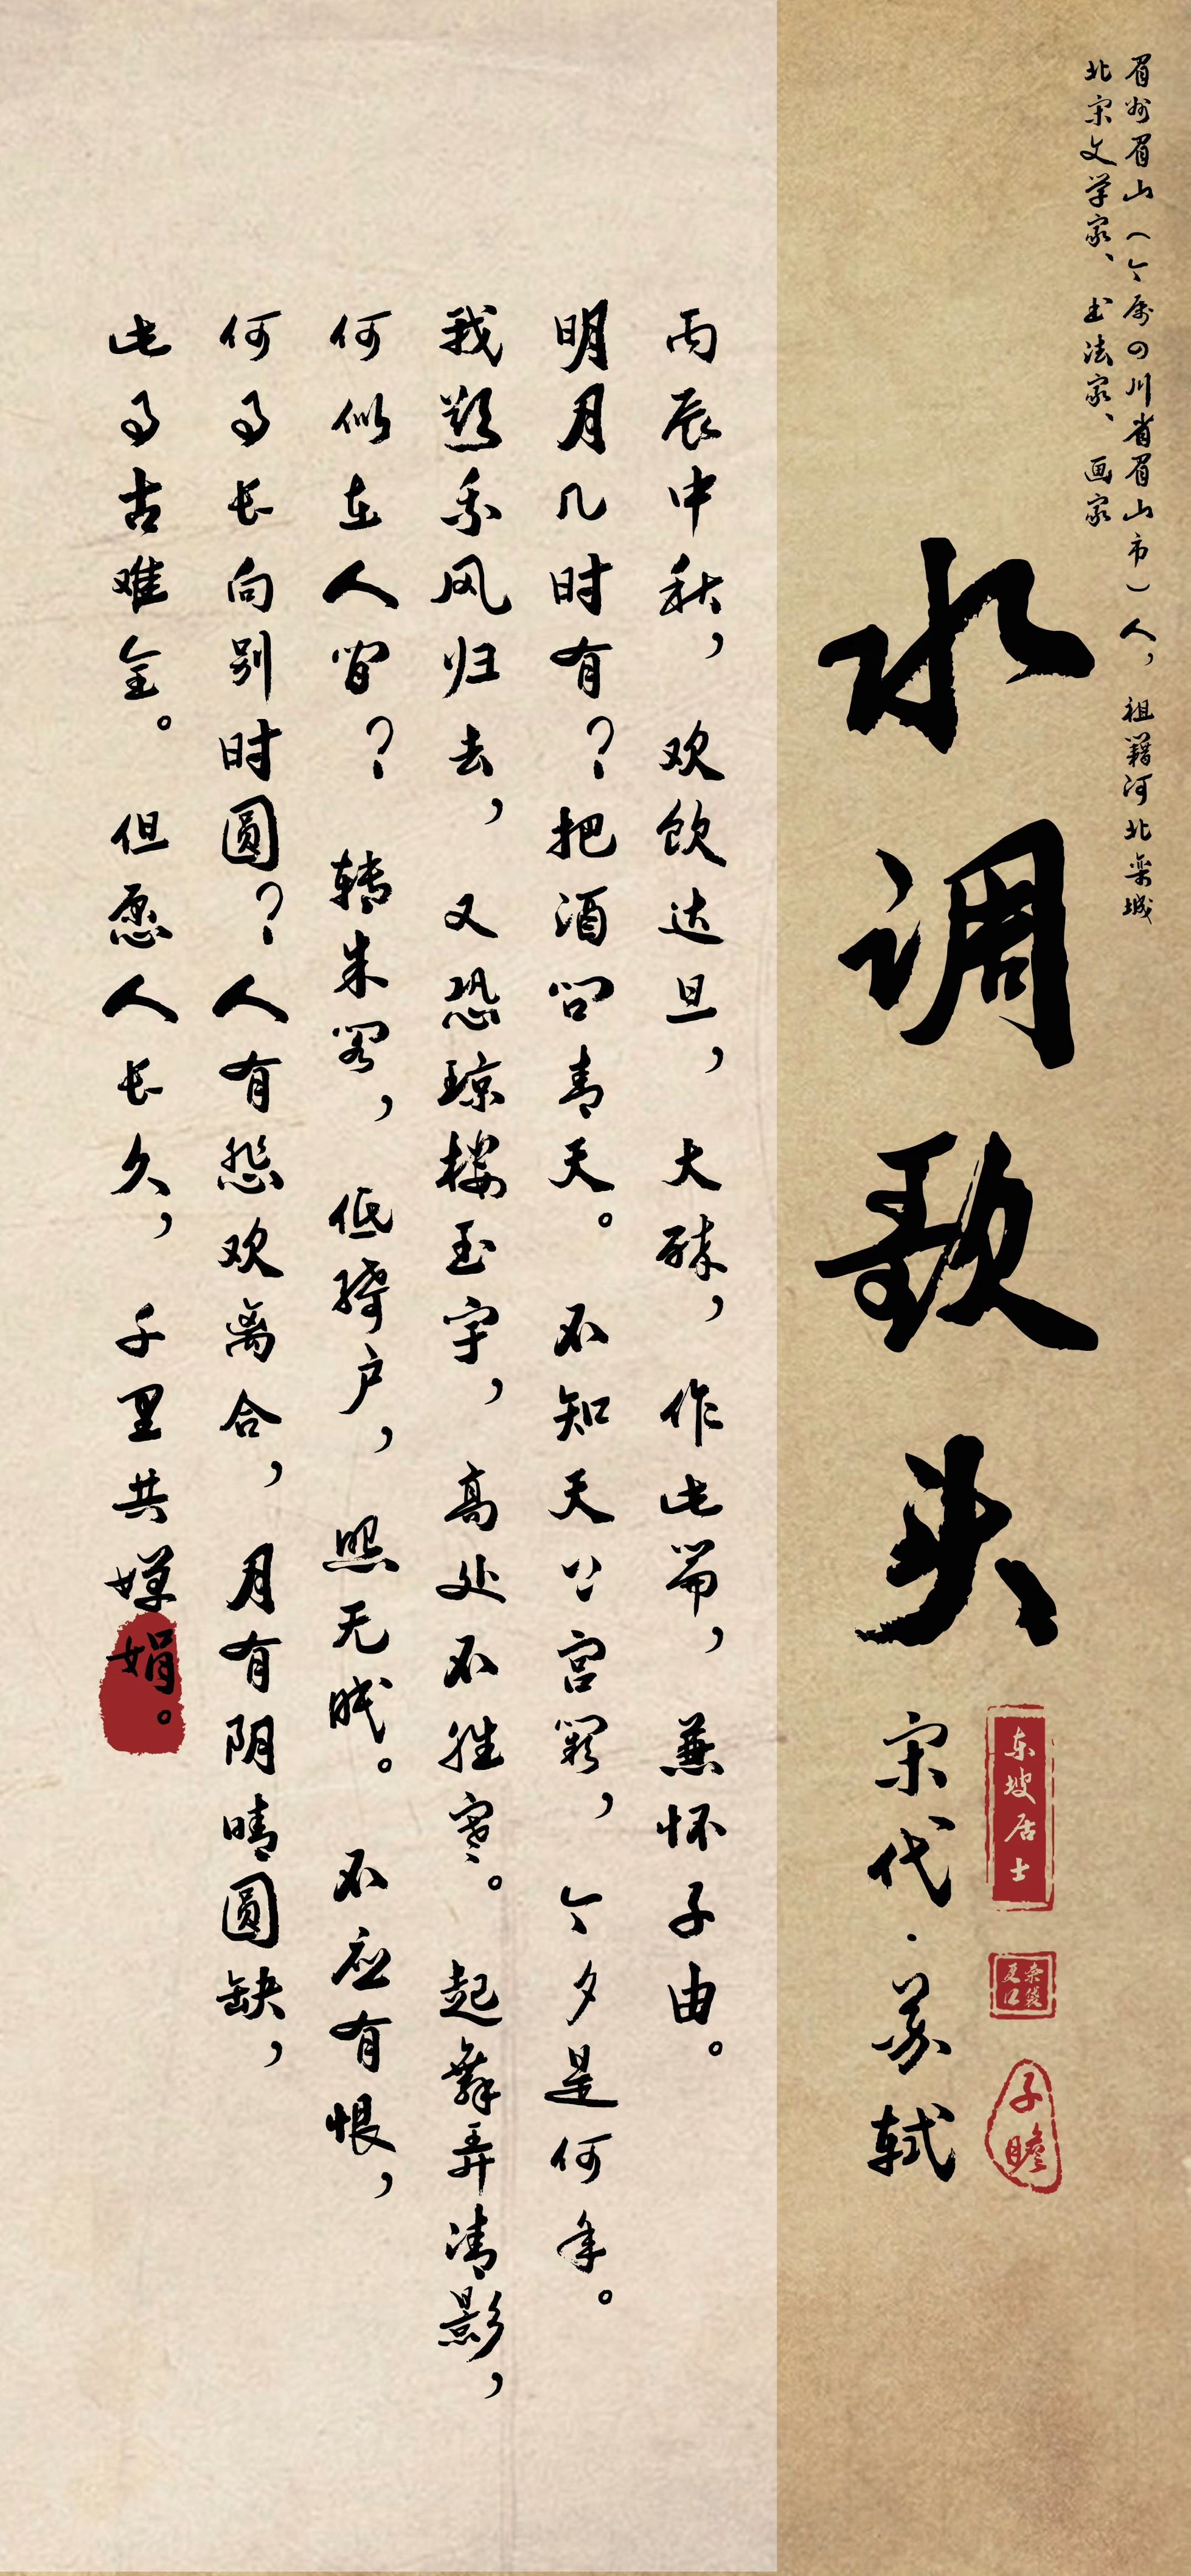 眉州眉山（今属四川省眉山市）人，祖籍河北栾城
北宋文学家、书法家、画家
水调歌头
东坡居士
子瞻
宋代·苏轼
丙辰中秋，欢饮达旦，大醉，作此篇，兼怀子由。
明月几时有？把酒问青天。不知天公宫阙，今夕是何年。
我欲乘风归去，又恐琼楼玉宇，高处不胜寒。起舞弄清影，
何似在人间？转朱阁，低绮户，照无眠。不应有恨，
何事长向别时圆？人有怨欢离合，月有阴晴圆缺，
此事古难全。但愿人长久，千里共婵娟。